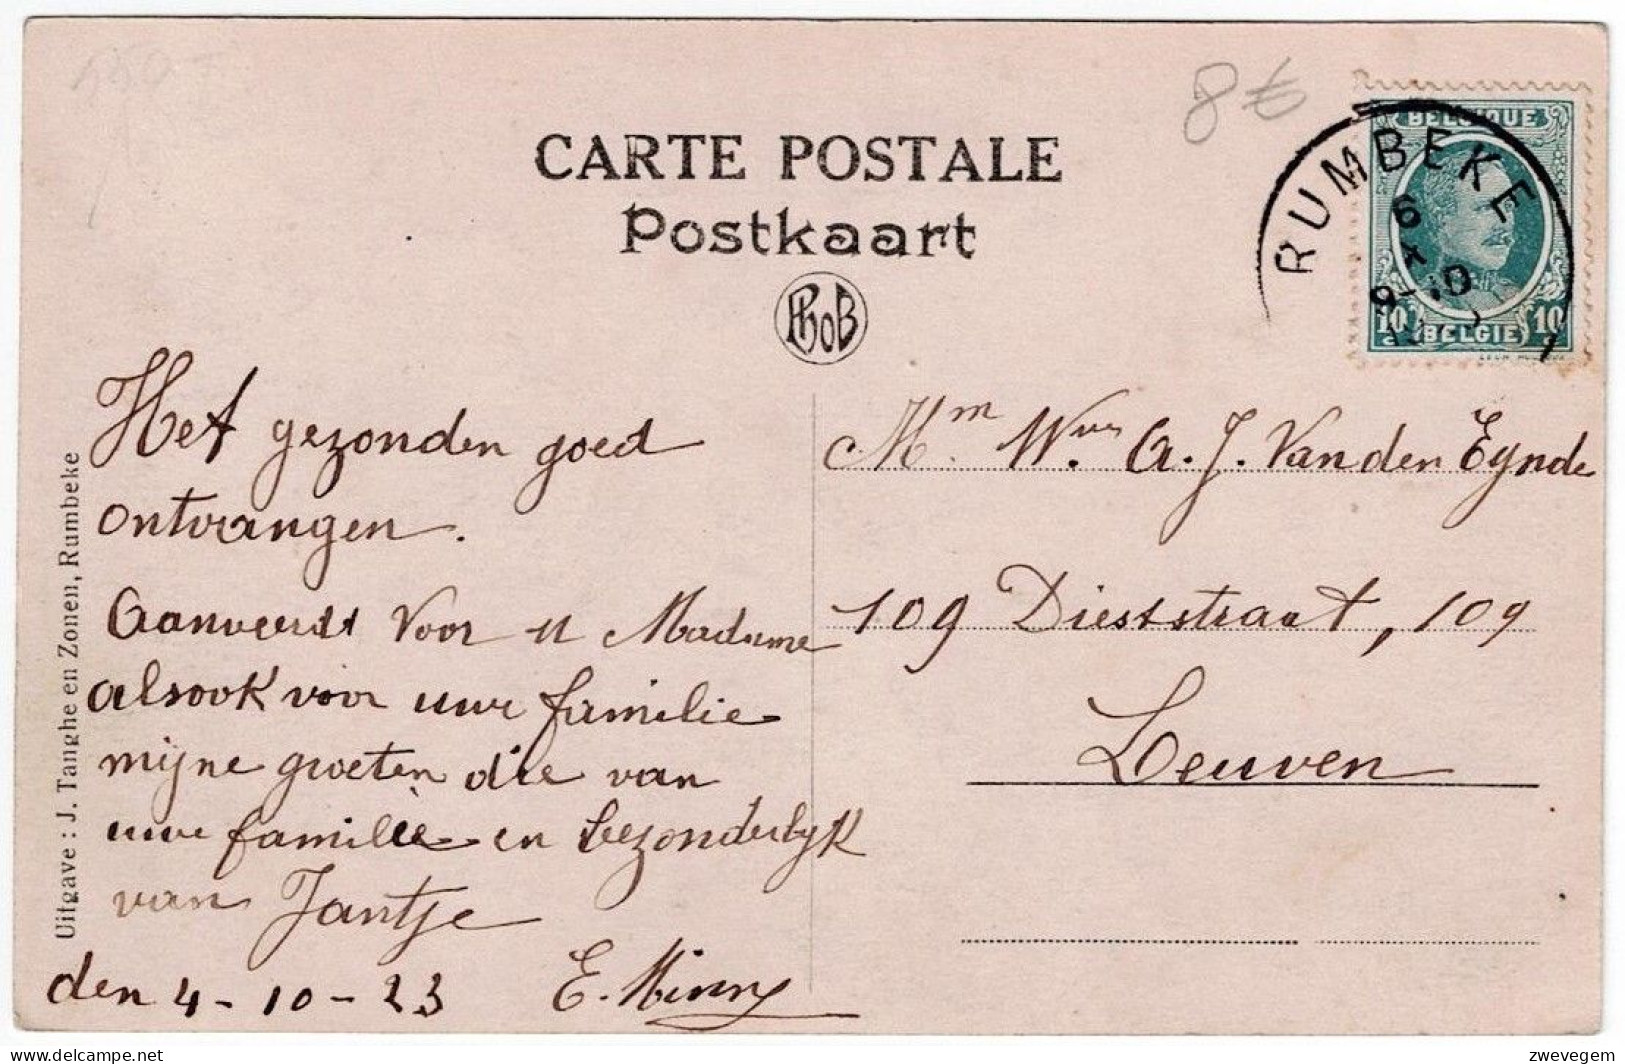 150-
8€
CARTE POSTALE
Postkaart
PhoB
BELGIQUE
10 BELGIE 10
RUMBEKE
6
X
9-10
Uitgave : J. Tanghe en Zonen, Rumbeke
Het gezonden goed
ontvangen.
Aanveerdt voor u Madame
alsook voor uwe familie
mijne groeten die van
uwe familie en bezonderlijk
van Jantje
den 4-10-23 E. Minny
Mm. Wwe A. J. Van den Eynde
109 Dieststraat, 109
Leuven
delcampe.net
zwevegem